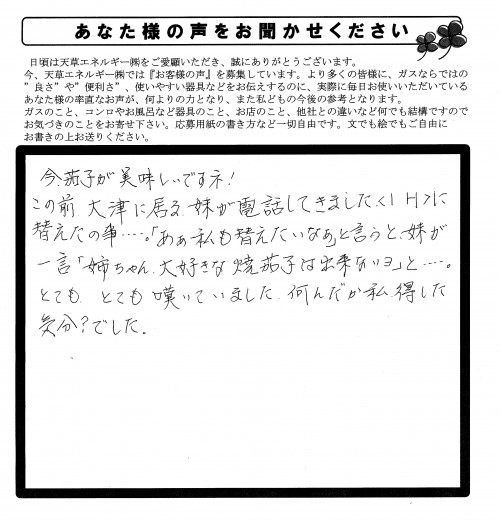 あなた様の声をお聞かせください
日頃は天草エネルギー㈱をご愛顧いただき、誠にありがとうございます。
今、天草エネルギー㈱では『お客様の声』を募集しています。より多くの皆様に、ガスならではの
”良さ”や”便利さ”、使いやすい器具などをお伝えするのに、実際に毎日お使いいただいている
あなた様の率直なお声が、何よりの力となり、また私どもの今後の参考となります。
ガスのこと、コンロやお風呂など器具のこと、お店のこと、他社との違いなど何でも結構ですので
お気づきのことをお寄せ下さい。応募用紙の書き方など一切自由です。文でも絵でもご自由に
お書きの上お送りください。
今、茄子が美味しいですネ!
この前、大津に居る妹が電話してきました<IH>に
替えたの事……。「あぁ私も替えたいなぁ」と言うと、妹が
一言「姉ちゃん、大好きな焼茄子は出来ないヨ」と……。
とても、とても嘆いていました。何んだか私、得した
気分?でした.